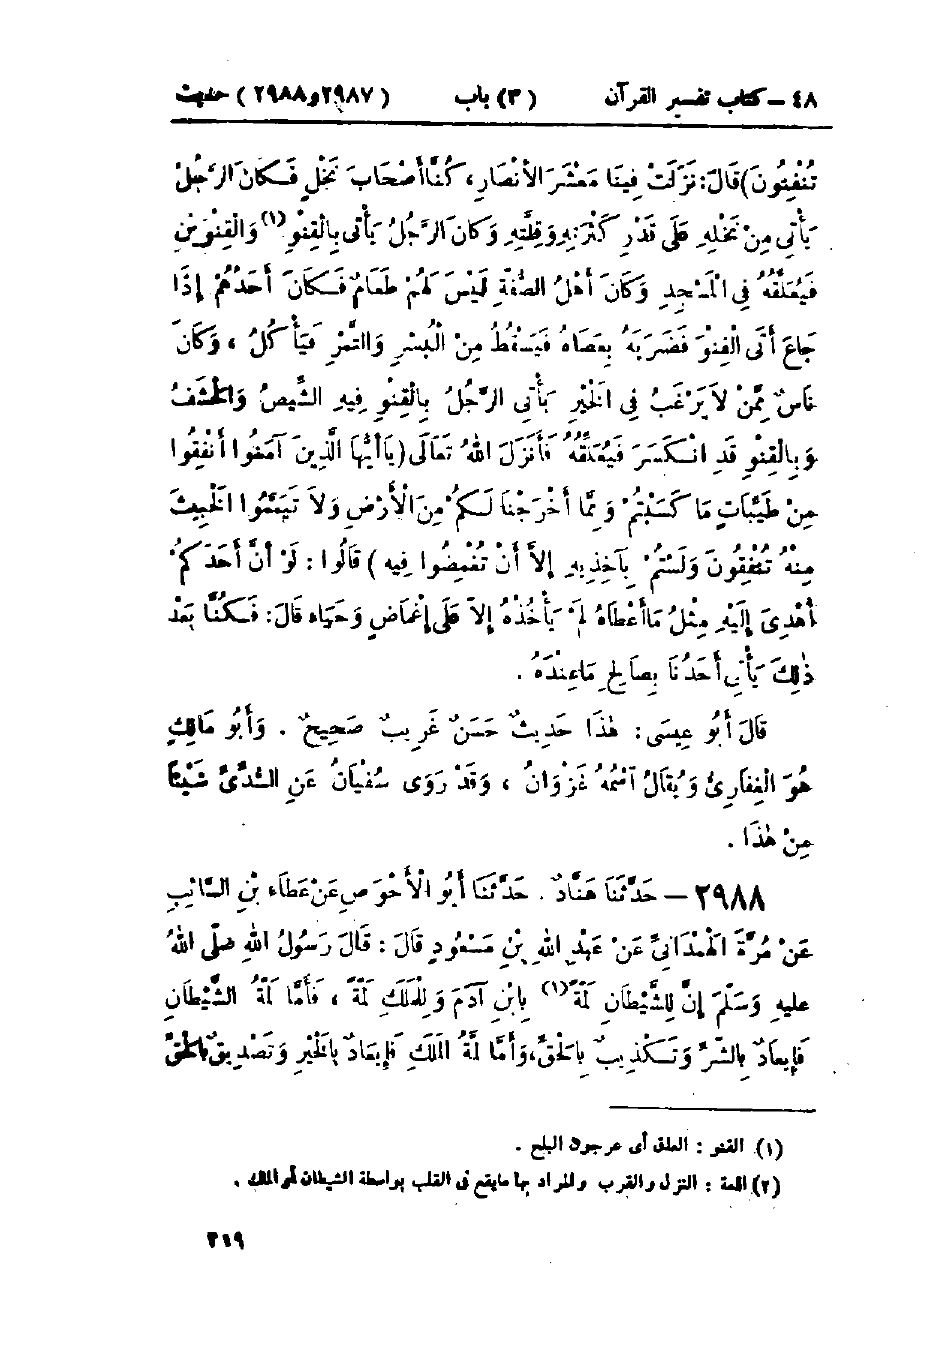 ٤٨ – كتاب تفسير القرآن (٣) باب (٢٩٨٧ و٢٩٨٨) حديث
تُنْفِقُونَ) قَالَ: نَزَلَتْ فِينَا مَعْشَرَ الأنْصَارِ، كُنَّا أَصْحَابَ نَخْلٍ فَكانَ الرَّجُلُ
يَأْتِي مِنْ نَخْلِهِ عَلَى قَدْرِ كَثْرَتِهِ وَقِلَّتِهِ وَكانَ الرَّجُلُ يَأْتِى بِالْقِنْوِ (١) وَالْقِنْوَيْنِ
فَيُعَلِّقُهُ فِى الْمَسْجِدِ وَكَانَ أَهْلُ الصُّفَّةِ لَيْسَ لَهُمْ طَعَامٌ فَكانَ أَحَدُهُمْ إِذَا
جَاعَ أَتَى الْقِنْوَ فَضَرَبَهُ بِعَصَاهُ فَيَسْقُطُ مِنْ الْبُسْرِ وَالتَّمْرِ فَيَأْكُلُ ، وَكَانَ
نَاسٌ مِمَّنْ لاَ يَرْغَبُ فِى الْخَيْرِ يَأْتِى الرَّجُلُ بِالْقِنْوِ فِيهِ الشِّيصُ وَالْحَشَفُ
وَبِالْقِنْوِ قَدِ انْكَسَرَ فَيُعَلِّقُهُ فَأَنْزَلَ اللهُ تَعَالَى (يَا أَيُّهَا الَّذِينَ آمَنُوا أَنْفِقُوا
مِنْ طَيِّبَاتِ مَا كَسَبْتُمْ وَمِمَّا أَخْرَجْنَا لَكُمْ مِنَ الْأَرْضِ وَلاَ تَيَمَّمُوا الْخَبِيثَ
مِنْهُ تُنْفِقُونَ وَلَسْتُمْ بِآخِذِيهِ إِلاَّ أَنْ تُغْمِضُوا فِيهِ ) قَالُوا : لَوْ أَنَّ أَحَدَكُمْ
أُهْدِىَ إِلَيْهِ مِثْلُ مَا أَعْطَاهُ لَمْ يَأْخُذْهُ إِلاَّ عَلَى إِغْمَاضٍ وَحَيَاءٍ قَالَ: فَكُنَّا بَعْدَ
ذٰلِكَ يَأْتِي أَحَدُنَا بِصَالِحِ مَا عِنْدَهُ .
قَالَ أَبُو عِيسَى : هٰذَا حَدِيثٌ حَسَنٌ غَرِيبٌ صَحِيحٌ . وَأَبُو مَالِكٍ
هُوَ الْغِفَارِىُّ وَيُقَالُ اسْمُهُ غَزْوَانُ ، وَقَدْ رَوَى سُفْيَانُ عَنِ السُّدِّىِّ شَيْئًا
مِنْ هٰذَا .
٢٩٨٨ – حَدَّثَنَا هَنَّادٌ . حَدَّثَنَا أَبُو الْأَحْوَصِ عَنْ عَطَاءِ بْنِ السَّائِبِ
عَنْ مُرَّةَ الْهَمْدَانِىِّ عَنْ عَبْدِ اللهِ بْنِ مَسْعُودٍ قَالَ : قَالَ رَسُولُ اللهِ صَلّى اللهُ
عليهِ وَسَلّمَ إِنَّ لِلشَّيْطَانِ لَمَّةً (١) بِابْنِ آدَمَ وَلِلْمَلَكِ لَمَّةً ، فَأَمَّا لَمَّةُ الشَّيْطَانِ
فَإِيعَادٌ بِالشَّرِّ وَتَكْذِيبٌ بِالْحَقِّ، وَأَمَّا لَمَّةُ الْمَلَكِ فَإِيعَادٌ بِالْخَيْرِ وَتَصْدِيقٌ بِالْحَقِّ
(١) القنو : العلق أى عرجون البلح .
(٢) اللمة : النزل والقرب والمراد بها مايقع فى القلب بواسطة الشيطان أو الملك .
٢١٩